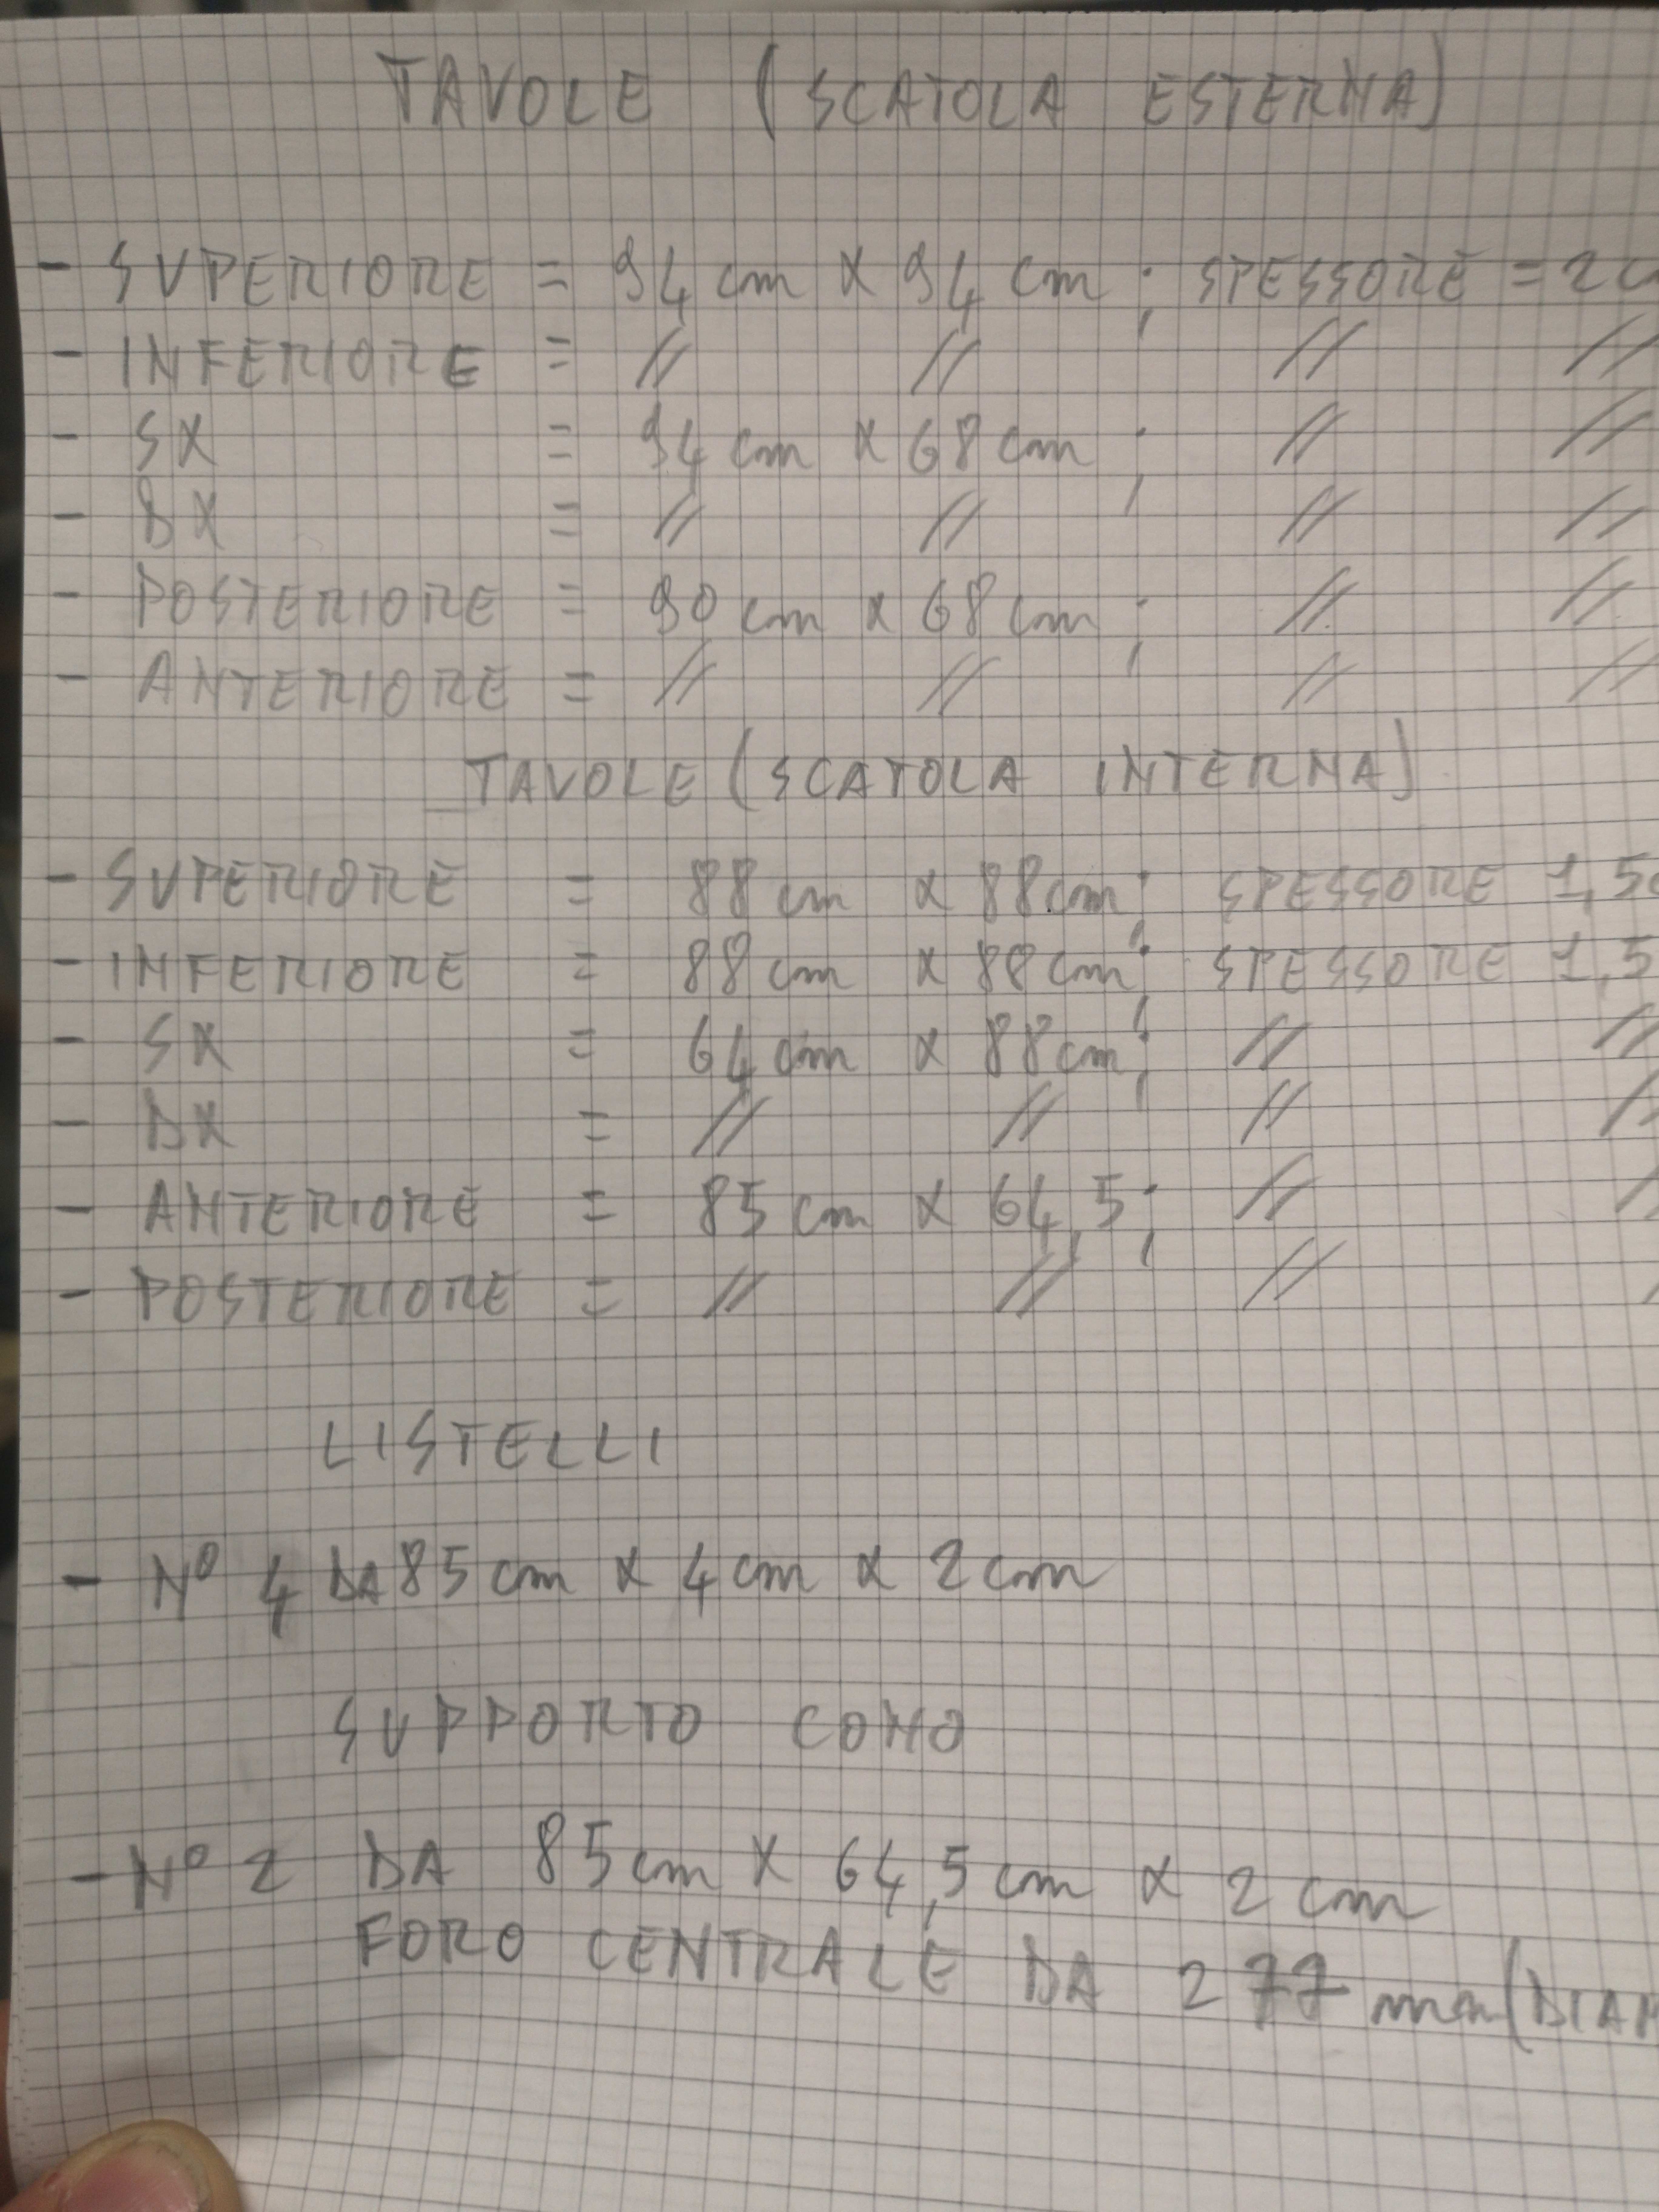 TAVOLE (SCATOLA ESTERNA)
- SUPERIORE = 94 cm x 94 cm ; SPESSORE = 2 c
- INFERIORE = // // ; // //
- SX = 94 cm x 68 cm ; // //
- DX = // // // //
- POSTERIORE = 90 cm x 68 cm ; // //
- ANTERIORE = // // // //
TAVOLE (SCATOLA INTERNA)
- SUPERIORE = 88 cm x 88 cm ; SPESSORE 1,5 c
- INFERIORE = 88 cm x 88 cm ; SPESSORE 1,5
- SX = 64 cm x 88 cm ; // //
- DX = // // // //
- ANTERIORE = 85 cm x 64,5 ; // //
- POSTERIORE = // // // /
LISTELLI
- N° 4 DA 85 cm x 4 cm x 2 cm
SUPPORTO CONO
- N° 2 DA 85 cm x 64,5 cm x 2 cm
FORO CENTRALE DA 277 mm (DIAM